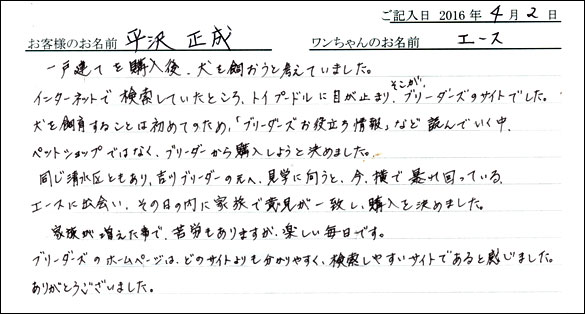 ご記入日 2016年 4月 2日
お客様のお名前 平沢 正成 ワンちゃんのお名前 エース
一戸建てを購入後、犬を飼おうと考えていました。
インターネットで検索していたところ、トイプードルに目が止まり、そこが、ブリーダーズのサイトでした。
犬を飼育することは初めてのため、「ブリーダーズお役立の情報」など読んでいく中、
ペットショップではなく、ブリーダーから購入しようと決めました。
同じ清水区ともあり、吉川ブリーダーの元へ、見学に向うと、今、横で暴れ回っている、
エースに出会い、その日の内に家族で意見が一致し、購入を決めました。
家族が増えた事で、苦労もありますが、楽しい毎日です。
ブリーダーズのホームページは、どのサイトよりも分かりやすく、検索しやすいサイトであると感じました。
ありがとうございました。